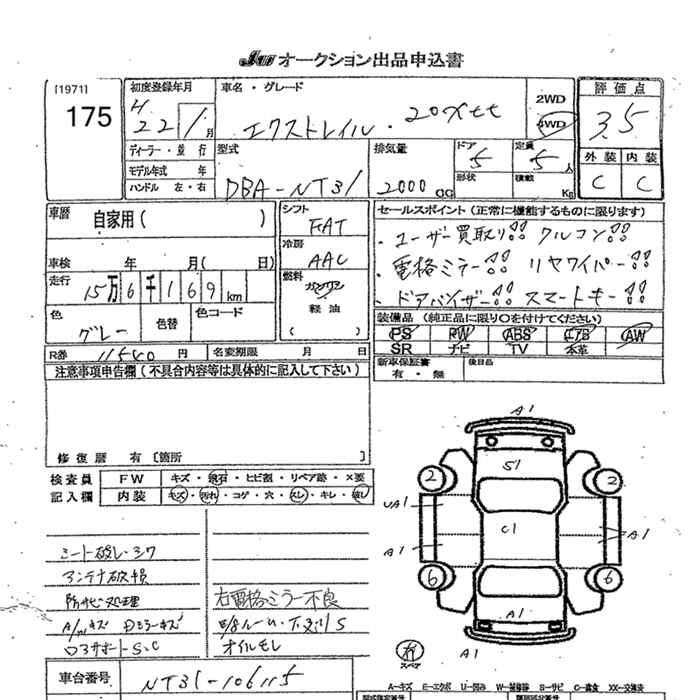 JU オークション出品申込書
[1971]
175
初度登録年月
H 22/1月
ディーラー・並行
モデル年式 年
ハンドル 左・右
車名・グレード
エクストレイル・20Xtt
2WD
4WD
型式
DBA-NT31
排気量
2000 cc
ドア
5
定員
5 人
形状
積載
Kg
評価点
3.5
外装 内装
C C
車歴 自家用( )
車検 年 月( 日)
走行 15万6千169km
色 グレー
色替
色コード
シフト
FAT
冷房
AAC
燃料
ガソリン
軽油
( )
セールスポイント(正常に機能するものに限ります)
・ユーザー買取り!! クルコン!!
・電格ミラー!! リヤワイパー!!
・ドアバイザー!! スマートキー!!
装備品(純正品に限り○を付けてください)
PS PW ABS エアB AW
SR ナビ TV 本革
R券 11540 円
名変期限 月 日
新車保証書
有・無
後日品
注意事項申告欄(不具合内容等は具体的に記入して下さい)
修復歴 有〔箇所
検査員
記入欄
FW キズ・飛石・ヒビ割・リペア跡・×要
内装 キズ・汚れ・コゲ・穴・スレ・キレ・破し
シート破レ・シワ
アンテナ破損
防サビ処理
A/Wキズ Dミラーキズ
ロアサポートS、C
右電格ミラー不良
オイルモレ
A1
S1
2
2
UA1
C1
A1
A1
6
6
A1
A1
スペア
車台番号
NT31-106115
A-キズ E-エクボ U-凹み W-補修跡 S-サビ C-腐食 XX-交換済